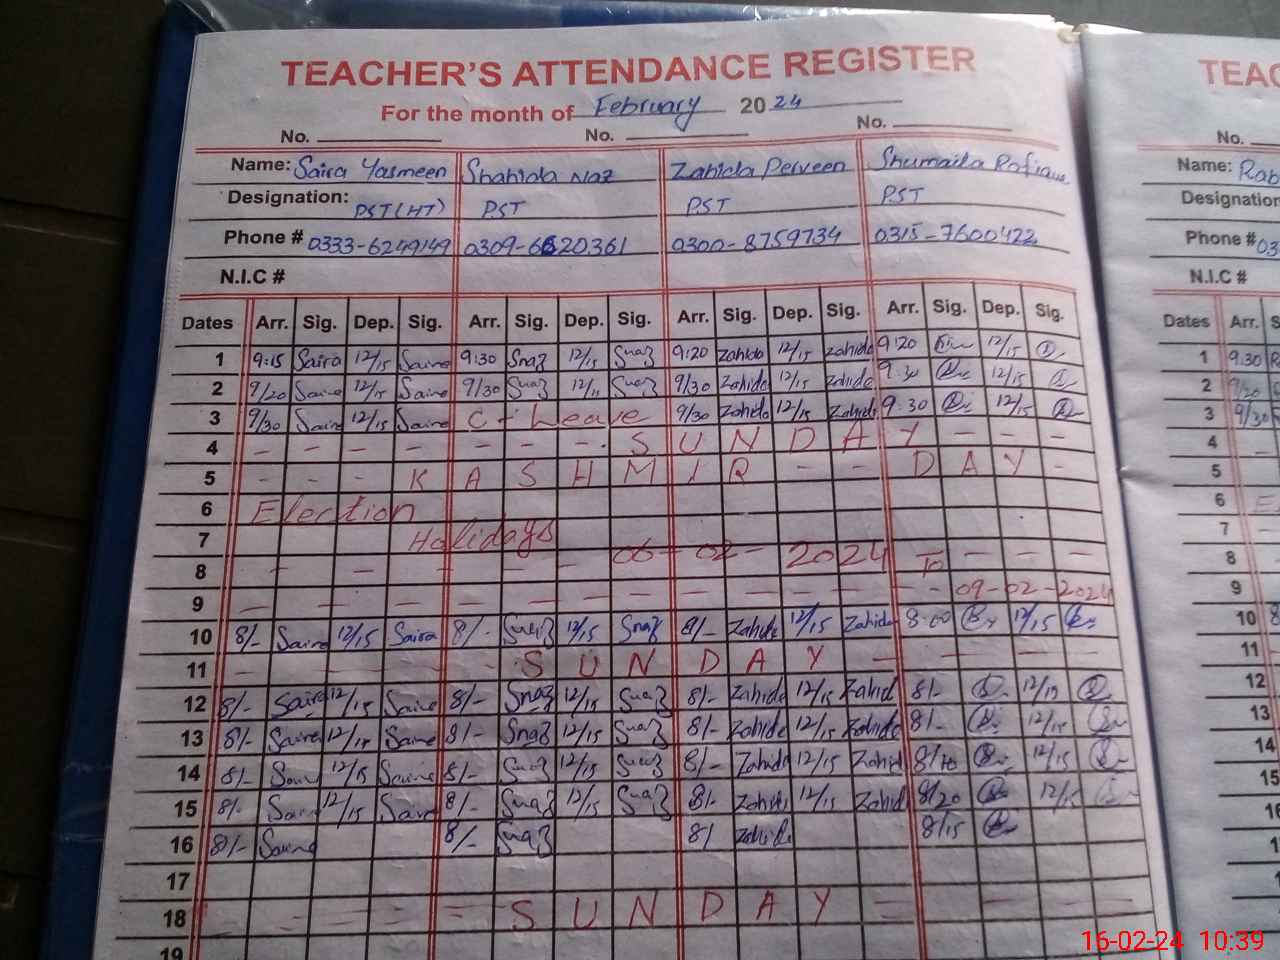 TEACHER'S ATTENDANCE REGISTER TEAC
For the month of February 2024
No. No. No. No.
Name: Saira Yasmeen Shahida Naz Zahida Perveen Shumaila Rafique Name: Rab
Designation: PST(HT) PST PST PST Designation
Phone # 0333-6249149 0309-6620361 0300-8759734 0315-7600422 Phone # 03
N.I.C # N.I.C #
Dates Arr. Sig. Dep. Sig. Arr. Sig. Dep. Sig. Arr. Sig. Dep. Sig. Arr. Sig. Dep. Sig. Dates Arr. S
1 9:15 Saira 12/15 Saira 9:30 Snaz 12/15 Snaz 9:20 Zahida 12/15 Zahida 9:20 12/15 1 9:30 R
2 9/20 Saira 12/15 Saira 9/30 Snaz 12/15 Snaz 9/30 Zahida 12/15 Zahida 9:30 12/15 2 9/20
3 9/30 Saira 12/15 Saira C-Leave 9/30 Zahida 12/15 Zahida 9:30 12/15 3 9/30
4 - - - - - - - SUNDAY - - - 4 -
5 - - - KASHMIR - - DAY - 5
6 Election 6 E
7 Holidays 06-02-2024 To 7 -
8 - - - - - - - - - 8
9 - - - - - - - - 09-02-2024 9
10 8/- Saira 12/15 Saira 8/- Snaz 12/15 Snaz 8/- Zahida 12/15 Zahida 8:00 12/15 10 8
11 - - - - - SUNDAY - - - - 11
12 8/- Saira 12/15 Saira 8/- Snaz 12/15 Snaz 8/- Zahida 12/15 Zahid 8/- 12/15 12
13 8/- Saira 12/15 Saira 8/- Snaz 12/15 Snaz 8/- Zahida 12/15 Zahida 8/- 12/15 13
14 8/- Saira 12/15 Saira 8/- Snaz 12/15 Snaz 8/- Zahida 12/15 Zahida 8/10 12/15 14
15 8/- Saira 12/15 Saira 8/- Snaz 12/15 Snaz 8/- Zahida 12/15 Zahid 8/20 12/15 15
16 8/- Saira 8/- Snaz 8/ Zahida 8/15 16
17
18 - - - - - SUNDAY - - - -
19
16-02-24 10:39